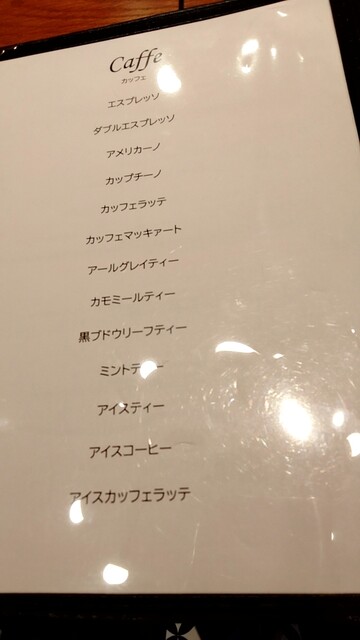 Caffe
カッフェ
エスプレッソ
ダブルエスプレッソ
アメリカーノ
カップチーノ
カッフェラッテ
カッフェマッキァート
アールグレイティー
カモミールティー
黒ブドウリーフティー
ミントティー
アイスティー
アイスコーヒー
アイスカッフェラッテ